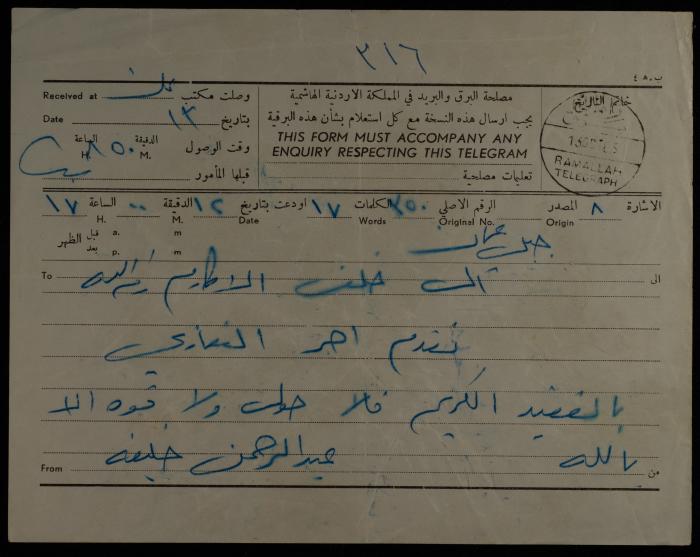 ٣١٦
ب.٨. ٤
مصلحة البرق والبريد في المملكة الاردنية الهاشمية
يجب ارسال هذه النسخة مع كل استعلام بشأن هذه البرقية
THIS FORM MUST ACCOMPANY ANY
ENQUIRY RESPECTING THIS TELEGRAM
تعليمات مصلحية
Received at وصلت مكتب
Date بتاريخ ١٣
وقت الوصول الدقيقة ٥٠ M. الساعة ٨ H.
قبلها المأمور
خاتم التاريخ
RAMALLAH
TELEGRAPH
الاشارة ٨ المصدر Origin الرقم الاصلي Original No. ٢٥٠ الكلمات Words ١٧ اودعت بتاريخ Date ١٢ الدقيقة M. ٠٠ الساعة H. ١٧
a. m قبل
p. m بعد
الظهر
جبل عمان
To الى
الى خلف الاكارم رام الله
نتقدم احر التعازي
بالفقيد الكريم فلا حول ولا قوه الا
بالله عبدالرحمن خليفه
From من